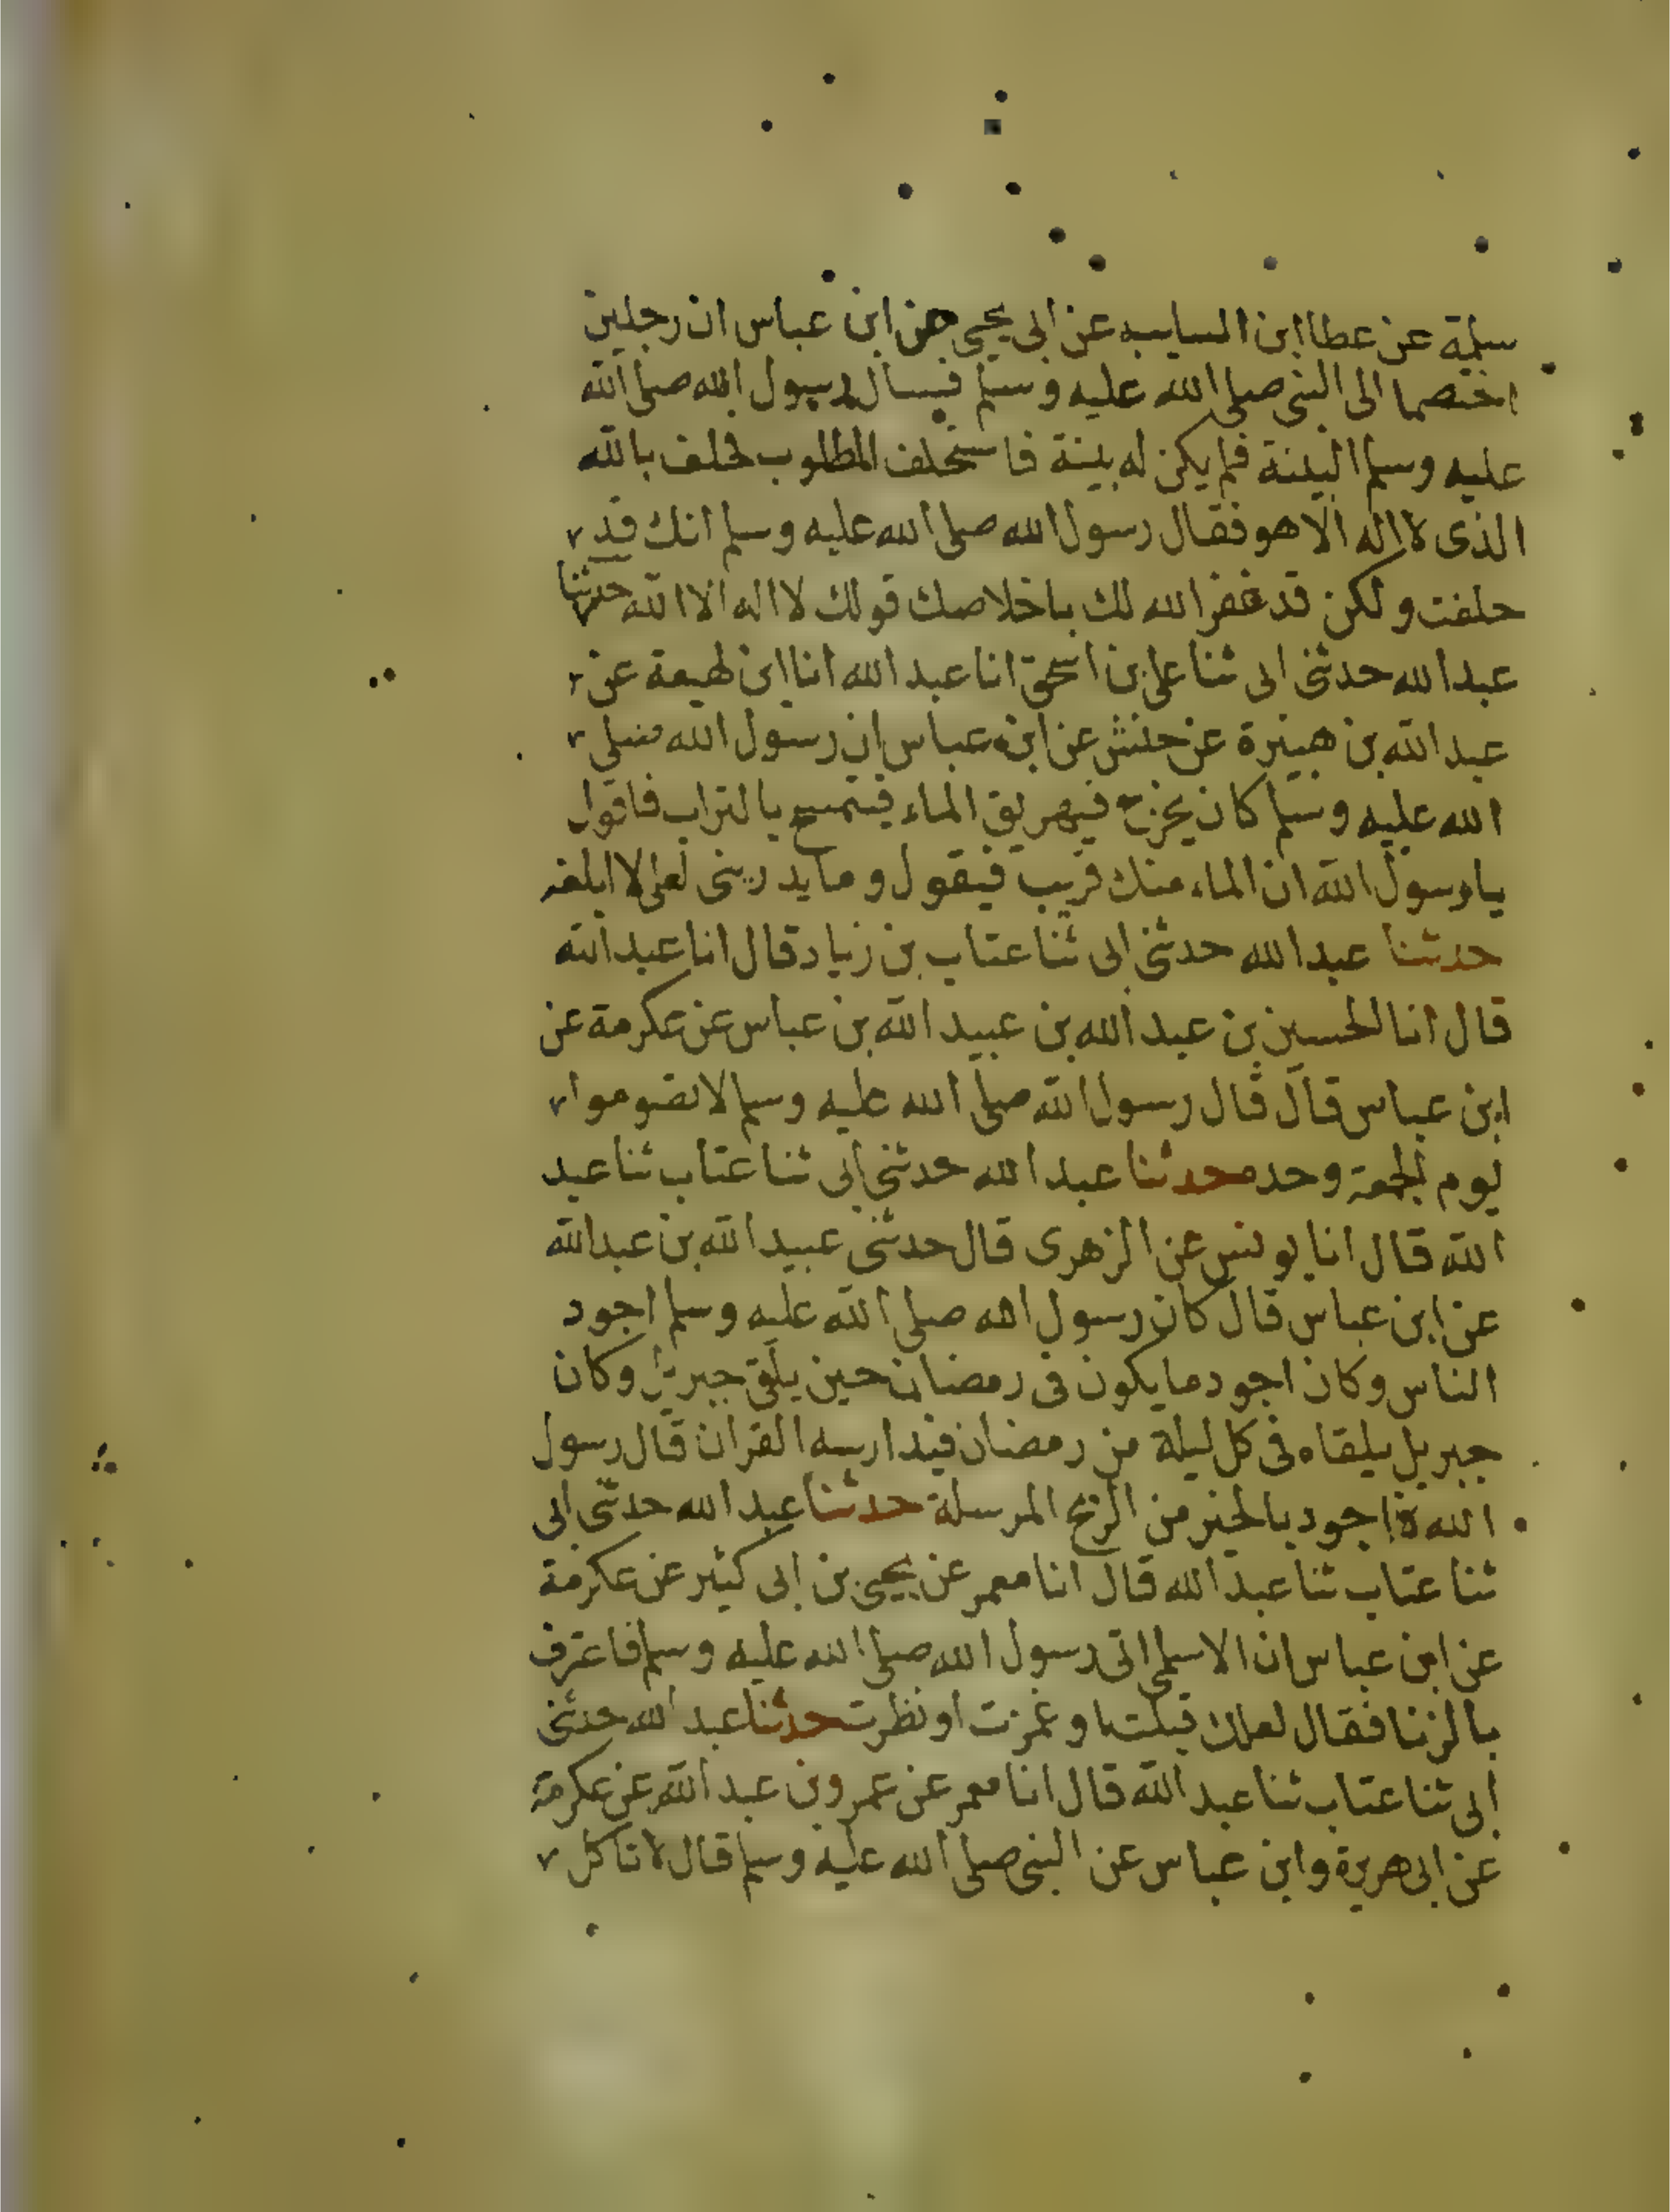 سلمة عن عطا ابن السايب عن ابى يحيى عن ابن عباس ان رجلين
اختصما الى النبى صلى الله عليه وسلم فسال رسول الله صلى الله
عليه وسلم البينة فلم يكن له بينة فاستحلف المطلوب فحلف بالله
الذى لا اله الا هو فقال رسول الله صلى الله عليه وسلم انك قد
حلفت ولكن قد غفر الله لك باخلاصك قولك لا اله الا الله حدثنا
عبد الله حدثنى ابى ثنا على بن اسحق انا عبد الله انا ابن لهيعة عن
عبد الله بن هبيرة عن حنش عن ابن عباس ان رسول الله صلى
الله عليه وسلم كان يخرج فيهريق الماء فيتمسح بالتراب فاقول
يا رسول الله ان الماء منك قريب فيقول وما يدرينى لعلى لا ابلغه
حدثنا عبد الله حدثنى ابى ثنا عتاب بن زياد قال انا عبد الله
قال انا الحسين بن عبد الله بن عبيد الله بن عباس عن عكرمة عن
ابن عباس قال قال رسول الله صلى الله عليه وسلم لا تصوموا
يوم الجمعة وحده حدثنا عبد الله حدثنى ابى ثنا عتاب ثنا عبد
الله قال انا يونس عن الزهرى قال حدثنى عبيد الله بن عبد الله
عن ابن عباس قال كان رسول الله صلى الله عليه وسلم اجود
الناس وكان اجود ما يكون فى رمضان حين يلقى جبريل وكان
جبريل يلقاه فى كل ليلة من رمضان فيدارسه القران قال رسول
الله اجود بالخير من الريح المرسلة حدثنا عبد الله حدثنى ابى
ثنا عتاب ثنا عبد الله قال انا معمر عن يحيى بن ابى كثير عن عكرمة
عن ابن عباس ان الاسلمى اتى رسول الله صلى الله عليه وسلم فاعترف
بالزنا فقال لعلك قبلت او غمزت او نظرت حدثنا عبد الله حدثنى
ابى ثنا عتاب ثنا عبد الله قال انا معمر عن عمرو بن عبد الله عن عكرمة
عن ابى هريرة وابن عباس عن النبى صلى الله عليه وسلم قال لا تاكل